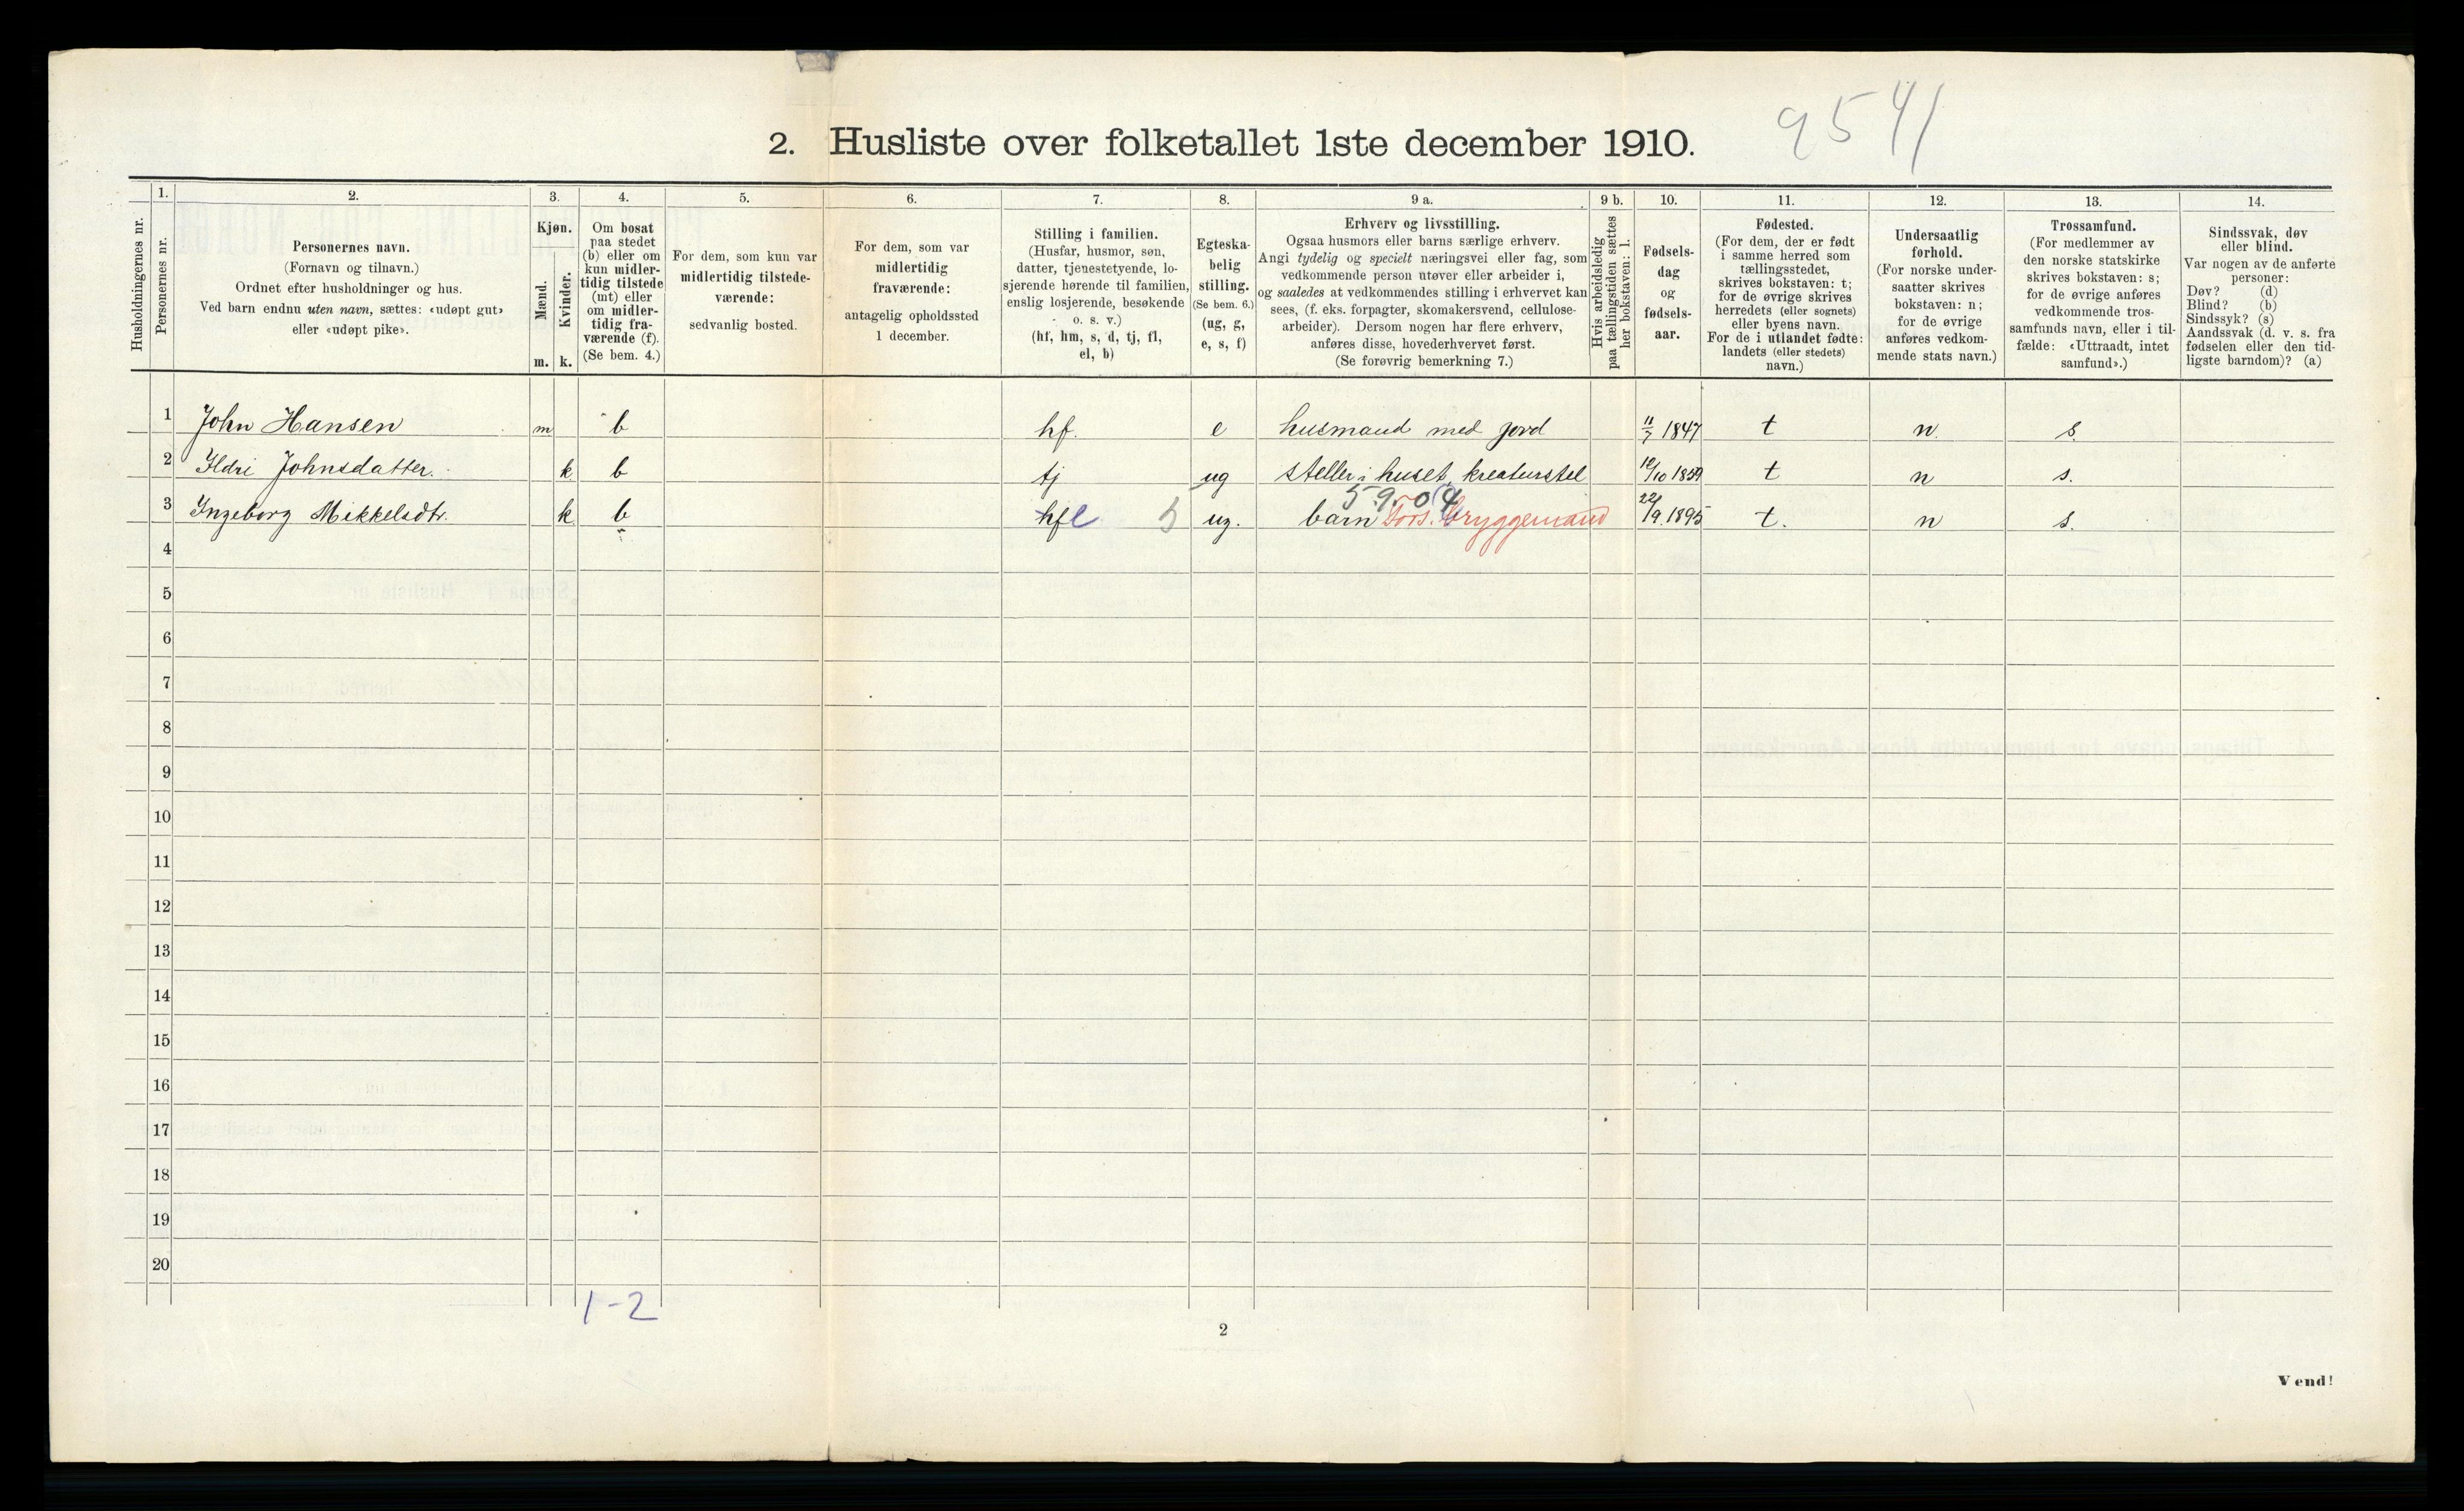 9541
2. Husliste over folketallet 1ste december 1910.
1. 2. 3. 4. 5. 6. 7. 8. 9 a. 9 b. 10. 11. 12. 13. 14.
Husholdningernes nr.
Personernes nr.
Personernes navn.
(Fornavn og tilnavn.)
Ordnet efter husholdninger og hus.
Ved barn endnu uten navn, sættes: «udøpt gut»
eller «udøpt pike».
Kjøn.
Mænd.
Kvinder.
m. k.
Om bosat
paa stedet
(b) eller om
kun midler-
tidig tilstede
(mt) eller
om midler-
tidig fra-
værende (f).
(Se bem. 4.)
For dem, som kun var
midlertidig tilstede-
værende:
sedvanlig bosted.
For dem, som var
midlertidig
fraværende:
antagelig opholdssted
1 december.
Stilling i familien.
(Husfar, husmor, søn,
datter, tjenestetyende, lo-
sjerende hørende til familien,
enslig losjerende, besøkende
o. s. v.)
(hf, hm, s, d, tj, fl,
el, b)
Egteska-
belig
stilling.
(Se bem. 6.)
(ug, g,
e, s, f)
Erhverv og livsstilling.
Ogsaa husmors eller barns særlige erhverv.
Angi tydelig og specielt næringsvei eller fag, som
vedkommende person utøver eller arbeider i,
og saaledes at vedkommendes stilling i erhvervet kan
sees, (f. eks. forpagter, skomakersvend, cellulose-
arbeider). Dersom nogen har flere erhverv,
anføres disse, hovederhvervet først.
(Se forøvrig bemerkning 7.)
Hvis arbeidsledig
paa tællingstiden sættes
her bokstaven: l.
Fødsels-
dag
og
fødsels-
aar.
Fødested.
(For dem, der er født
i samme herred som
tællingsstedet,
skrives bokstaven: t;
for de øvrige skrives
herredets (eller sognets)
eller byens navn.
For de i utlandet fødte:
landets (eller stedets)
navn.)
Undersaatlig
forhold.
(For norske under-
saatter skrives
bokstaven: n;
for de øvrige
anføres vedkom-
mende stats navn.)
Trossamfund.
(For medlemmer av
den norske statskirke
skrives bokstaven: s;
for de øvrige anføres
vedkommende tros-
samfunds navn, eller i til-
fælde: «Uttraadt, intet
samfund».)
Sindssvak, døv
eller blind.
Var nogen av de anførte
personer:
Døv? (d)
Blind? (b)
Sindssyk? (s)
Aandssvak (d. v. s. fra
fødselen eller den tid-
ligste barndom)? (a)
1 John Hansen m b hf. e husmand med jord 11/7 1847 t n. s.
2 Ildri Johnsdatter. k b tj ug steller i huset, kreaturstel 12/10 1859 t n s.
5.9.04
3 Ingeborg Mikkelsdtr. k b ug. barn Fors. Bryggemand 22/9. 1895 t. n s.
4
5
6
7
8
9
10
11
12
13
14
15
16
17
18
19
20
1-2
2
Vend!